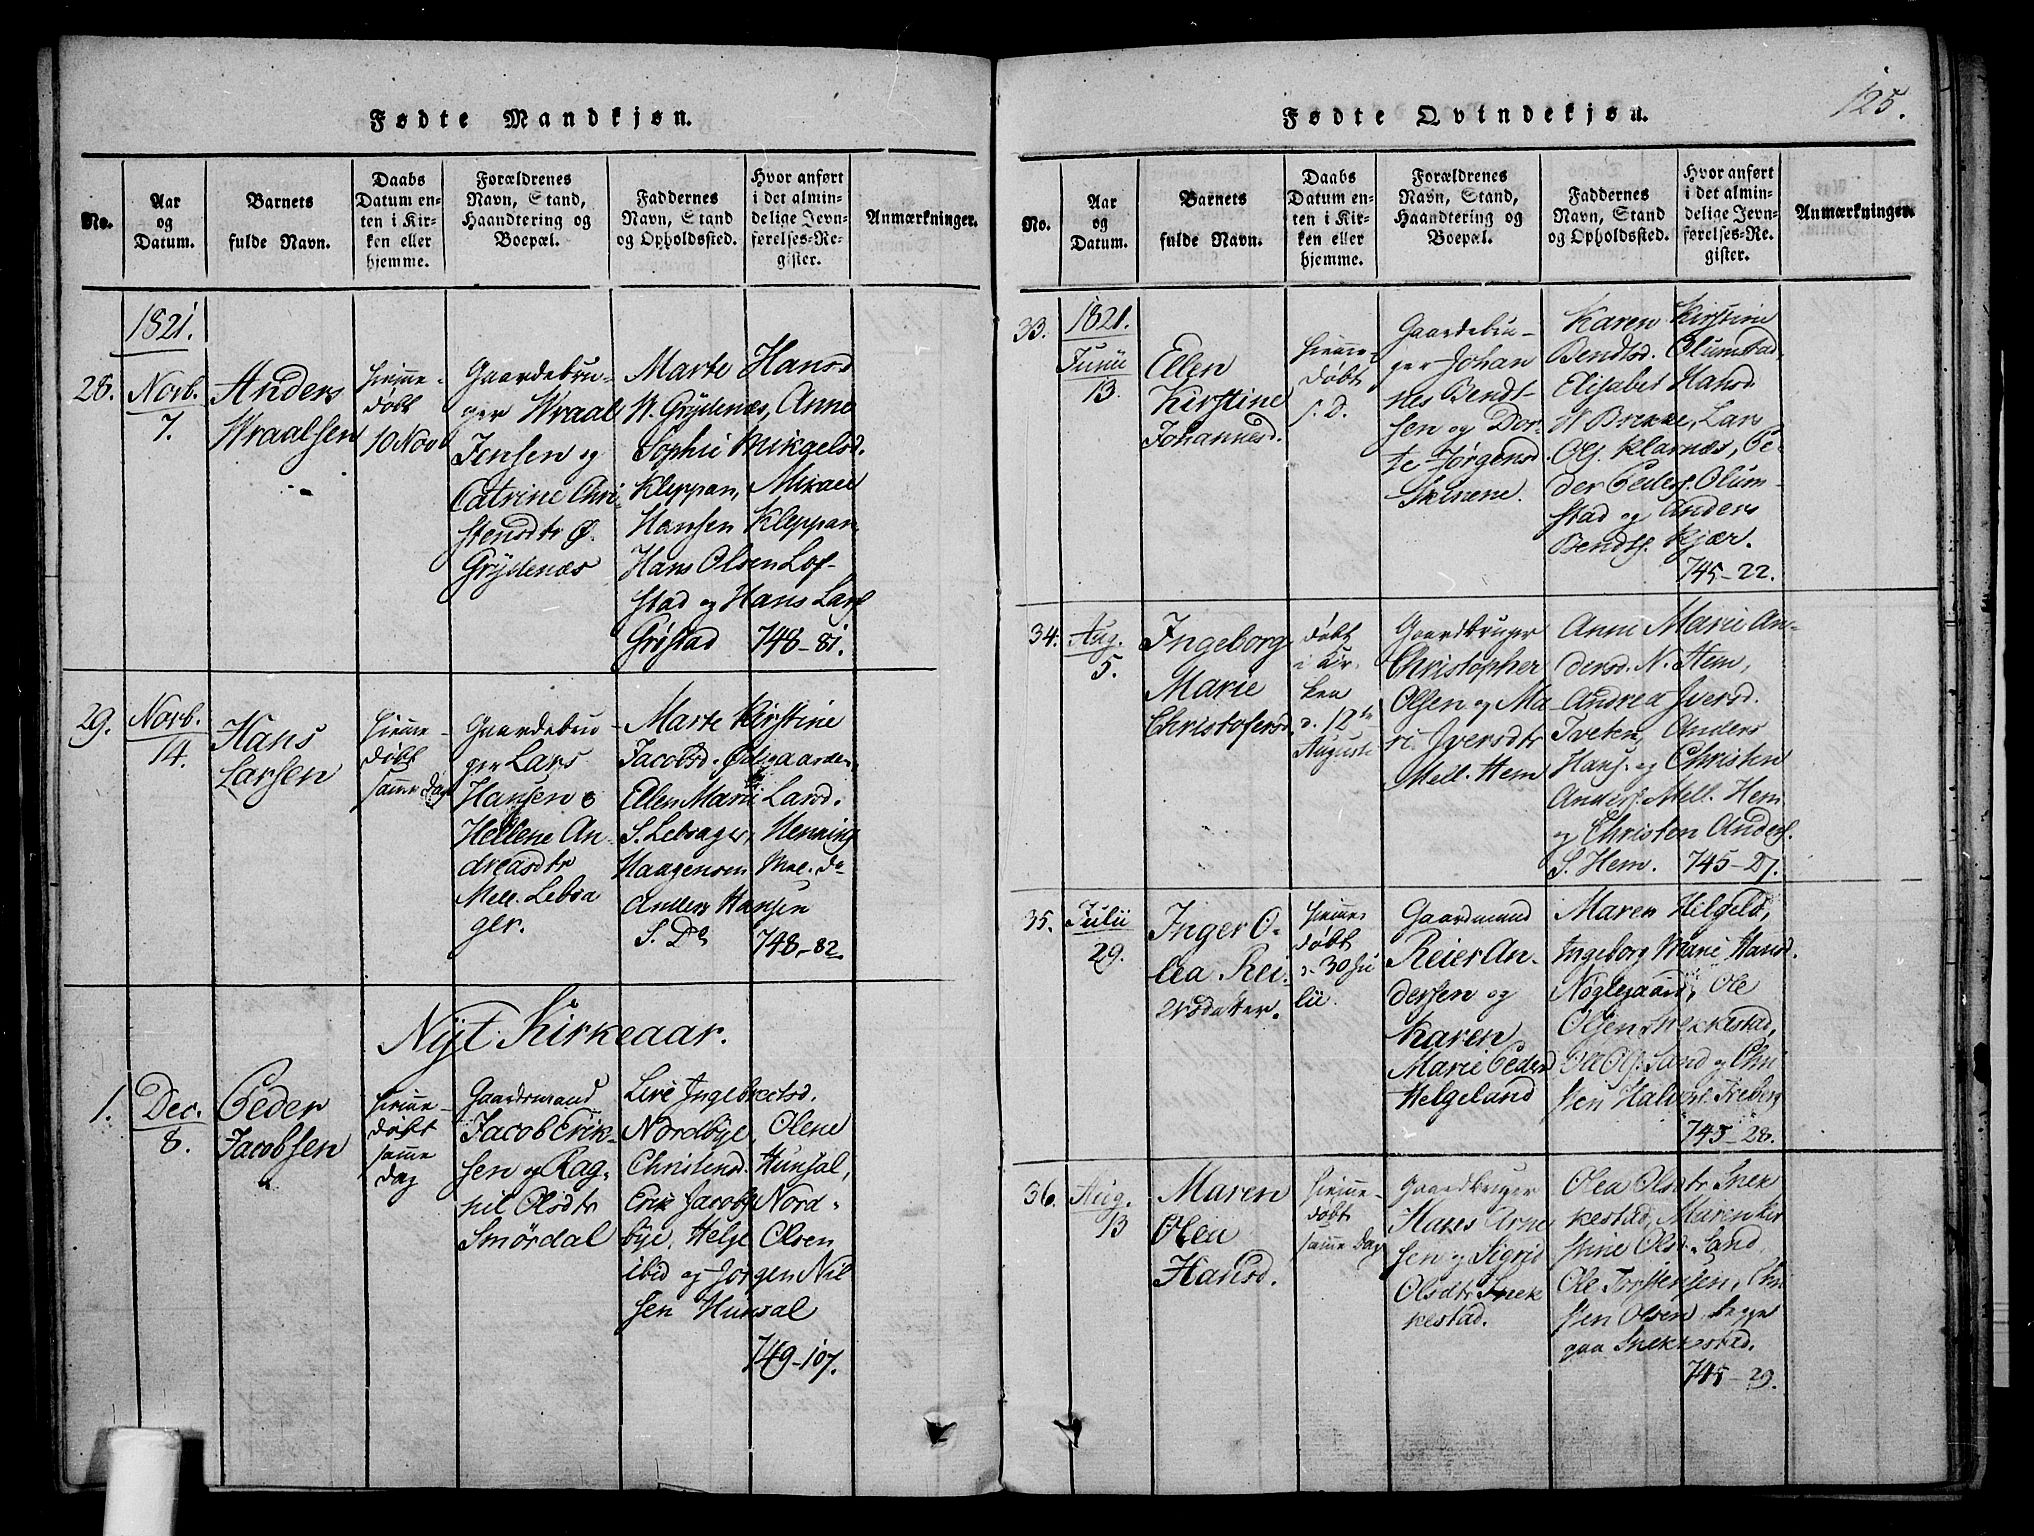 Fødte Mandkjøn.
No.
Aar
og
Datum.
Barnets
fulde Navn.
Daabs
Datum en-
ten i Kir-
ken eller
hjemme.
Forældrenes
Navn, Stand,
Haandtering og
Boepæl.
Faddernes
Navn, Stand
og Opholdssted.
Hvor anført
i det almin-
delige Jevn-
førelses-Re-
gister.
Anmærkninger.
1821.
28.
Novb.
7.
Anders
Wraalsen
hieme-
døbt
10 Nov
Gaardebru-
ger Wraal
Jensen og
Catrine Chri-
stensdtr Ø.
Grydenæs
Marte Hansd
W. Grydenæs, Anne
Sophie Mikgelsd.
Kleppan, Mikael
Hansen Kleppan
Hans Olsen Lof-
stad og Hans Lars
Grøstad 748-81.
29.
Novb.
14.
Hans
Larsen
hieme-
døbt
samme Dag
Gaardebru-
ger Lars
Hansen &
Hellene An-
dreasdtr
Mell. Lebsa
ger.
Marte Kirstine
Jacobsd. Ødegaarden
Ellen Marie Larsd.
S. Lebsager, Henning
Haagensen Mel. do
Anders Hansen
S. Do
748-82
Nyt Kirkeaar.
1.
Dec.
8.
Peder
Jacobsen
hieme-
døbt
samme
dag
Gaardsmand
Jacob Erik-
sen og Rag-
nil Olsdtr
Smørdal
Live Ingebretsd.
Nordbye, Olene
Christensd. Hunsal,
Erik Jacobs Nord-
bye, Helge Olsen
ibid og Jørgen Nil
sen Hunsal
749-107.
125.
Fødte Qvindekjøn.
No.
Aar
og
Datum.
Barnets
fulde Navn.
Daabs
Datum en-
ten i Kir-
ken eller
hjemme.
Forældrenes
Navn, Stand,
Haandtering og
Boepæl.
Faddernes
Navn, Stand
og Opholdssted.
Hvor anført
i det almin-
delige Jevn-
førelses-Re-
gister.
Anmærkninger.
33.
1821.
Junii
13.
Ellen
Kirstine
Johannesd.
hieme-
døbt
s. D.
Gaardebru-
ger Johan
nes Bendt-
sen og Dor-
te Jørgensd
Skinene.
Karen Kirstine
Bendtsd. Olumstad,
Elisabet Hansd
W Brekke, Lars
Ols. Klarnæs, Pe-
der Peders. Olum-
stad og Anders
Bendts. Kjær.
745-22.
34.
Aug.
5.
Ingeborg
Marie
Christofersd.
døbt
i Kir-
ken
d. 12te
Augusti
Gaardbruger
Christopher
Olsen og Ma-
ri Iversdtr
Mell. Hem
Anne Marie An-
dersd. N. Hem,
Andrea Iversd.
Tveten, Anders
Hans. og Christen
Anders. Mell. Hem
og Christen Anders.
S. Hem. 745-27.
35.
Julii
29.
Inger O-
lea Rei-
ersdatter.
hieme-
døbt
d. 30 Ju
lii.
Gaardmand
Reier An-
dersen og
Karen
Marie Pedersd
Helgeland
Maren Hilgeld,
Ingeborg Marie Hansd.
Nøglegaard, Ole
Olsen Snekkestad,
Ole Ols. Sand og Chri
sten Halvors. Freberg
745-28.
36.
Aug.
13
Maren
Olea
Hansd.
hieme-
døbt
samme Dag
Gaardbruger
Hans Arne
sen og Sigrid
Olsdtr Snek
kestad.
Olea Olsdtr Snek
kestad, Maren Kir
stine Olsd. Sand,
Ole Torstensen, Chri
sten Olsen, begge
paa Snekkestad.
745-29.